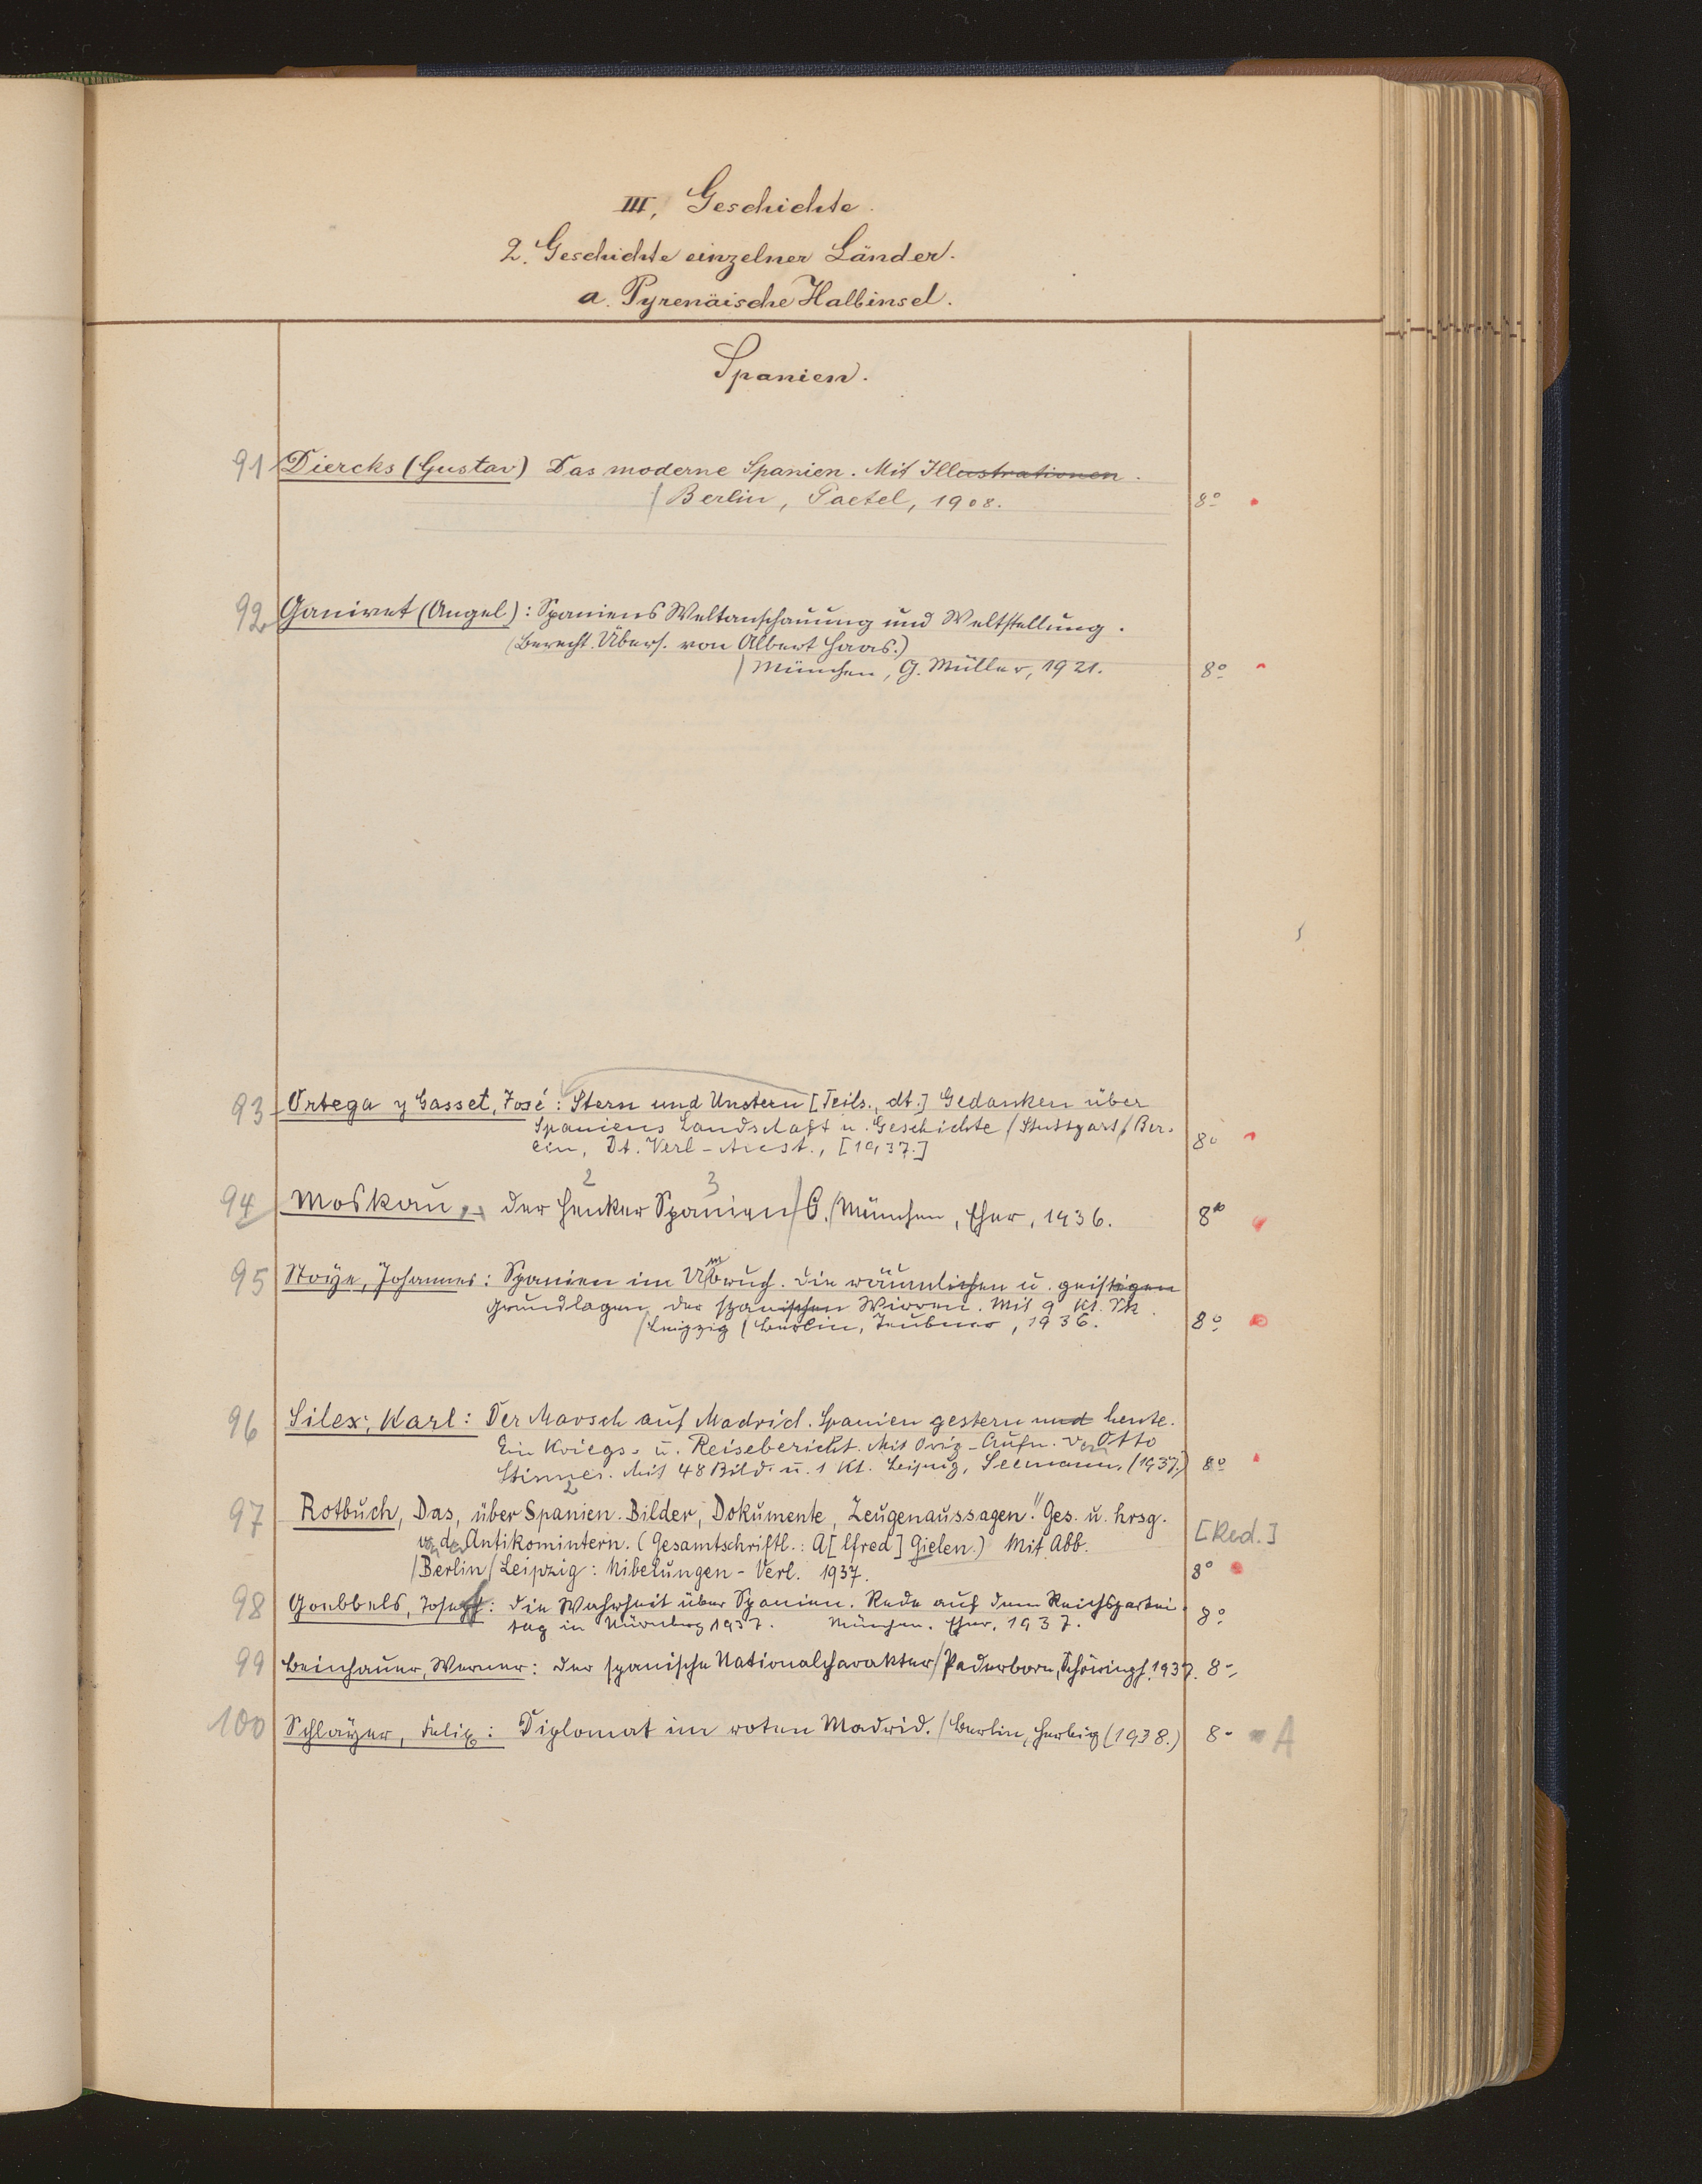 III, Geschichte.
2. Geschichte einzelner Länder.
a. Pyrenäische Halbinsel.
Spanien.
91 Diercks (Gustav) Das moderne Spanien. Mit Illustrationen.
/ Berlin, Paetel, 1908. 8°
92 Ganivet (Angel): Spaniens Weltanschauung und Weltstellung.
(Berecht. Übers. von Albert Haas.)
/ München, G. Müller, 1921. 8°
93 Ortega y Gasset, José: Stern und Unstern [Teils., dt.] Gedanken über
Spaniens Landschaft u. Geschichte / Stuttgart / Ber-
lin, Dt. Verl-Anst., [1937.] 8°
2 3
94 Moskau, der Henker Spaniens. / München, Eher, 1936. 8°
95 Stoye, Johannes: Spanien im Umbruch. Die räumlichen u. geistigen
Grundlagen der spanischen Wirren. Mit 9 Kt. Sk.
/ Leipzig / Berlin, Teubner, 1936. 8°
96 Silex, Karl: Der Marsch auf Madrid. Spanien gestern und heute.
Ein Kriegs- u. Reisebericht. Mit Orig-Aufn. von Otto
Mit 48 Bild. u. 1 Kt. Leipzig, Seemann, (1937.) 8°
97 Rotbuch, Das, über Spanien. Bilder, Dokumente, Zeugenaussagen. Ges. u. hrsg.
von der Antikomintern. (Gesamtschriftl.: A[lfred] Gielen.) Mit Abb. [Red.]
/ Berlin / Leipzig: Nibelungen-Verl. 1937. 8°
98 Goebbels, Joseph: Die Wahrheit über Spanien. Rede auf dem Reichspartei-
tag in Nürnberg 1937. München. Eher, 1937. 8°
99 Beinhauer, Werner: Der spanische Nationalcharakter / Paderborn, Schöningh, 1937. 8-
100 Schlayer, Felix: Diplomat im roten Madrid. / Berlin, Herbig (1938.) 8- A